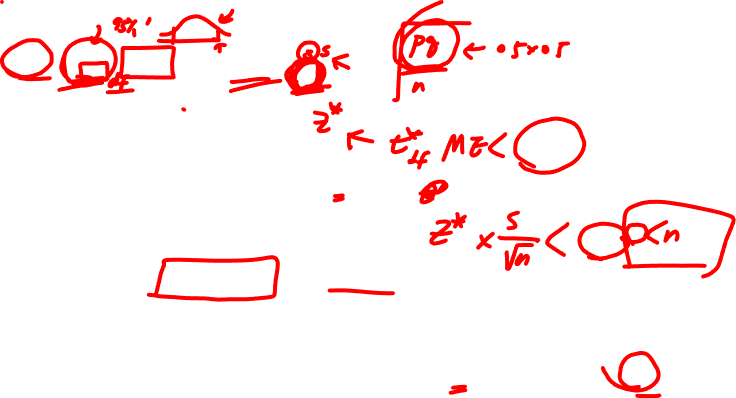 95%
df
s
pq ← .5x.5
n
z* ← t*df ME <
z* x s/√n < < n
=